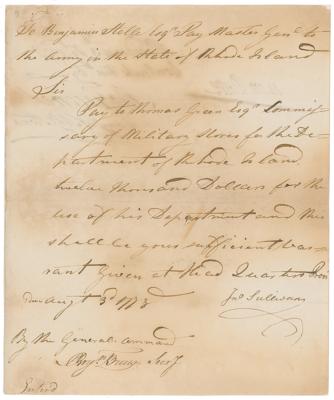 To Benjamin Stelle Esqr Pay Master Genl to
the Army in the State of Rhode Island
Sir
Pay to Thomas Green Esqr Commis-
sary of Military Stores for the De-
partment of Rhode Island,
twelve thousand Dollars for the
use of his Department and this
shall be your sufficient War-
rant Given at Head Quarters Prov
dence Augt 3d 1778
Jno Sullivan
By the Generals Command
Secy
Entrd